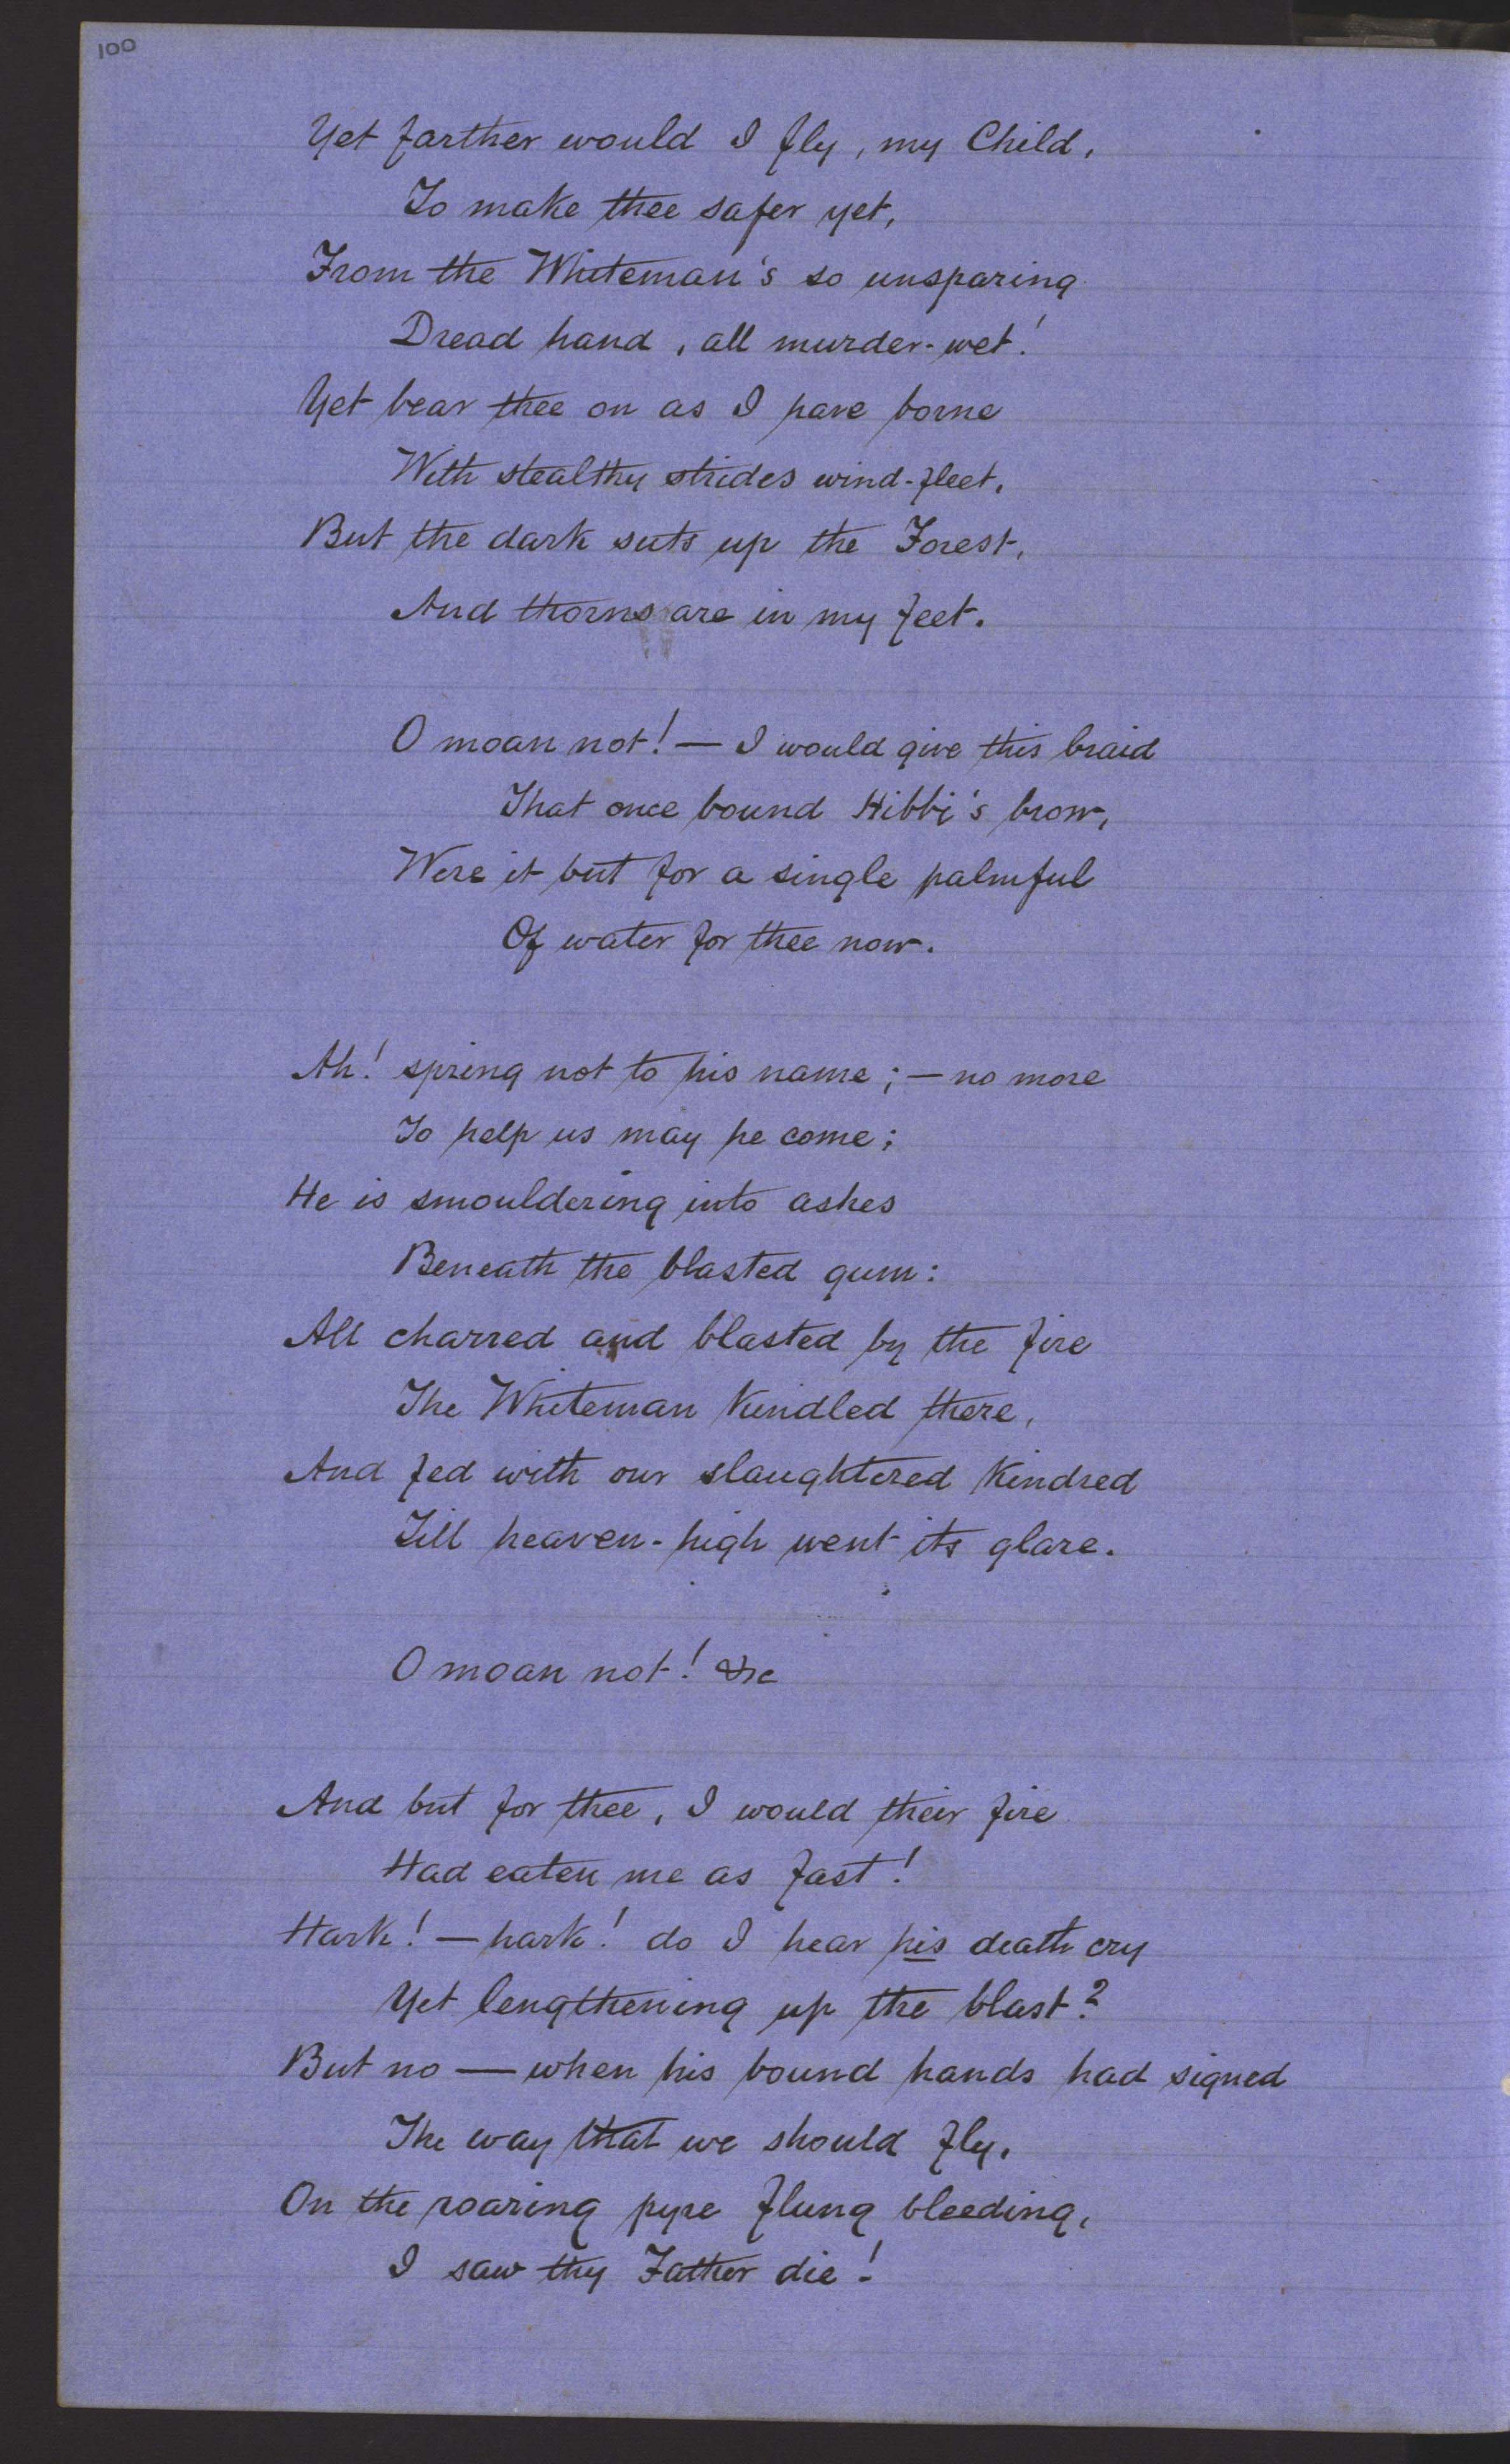 100
Yet farther would I fly, my Child,
To make thee safer yet,
From the Whiteman's so unsparing
Dread hand, all murder-wet!
Yet bear thee on as I have borne
With stealthy strides wind-fleet,
But the dark suts up the Forest,
And thorns are in my feet.
O moan not! — I would give this braid
That once bound Hibbi's brow,
Were it but for a single palmful
Of water for thee now.
Ah! spring not to his name; — no more
To help us may he come;
He is smouldering into ashes
Beneath the blasted gum:
All charred and blasted by the fire
The Whiteman kindled there,
And fed with our slaughtered kindred
Till heaven-high went its glare.
O moan not! &c
And but for thee, I would their fire
Had eaten me as fast!
Hark! — hark! do I hear his death cry
Yet lengthening up the blast?
But no — when his bound hands had signed
The way that we should fly,
On the roaring pyre flung bleeding,
I saw thy Father die!